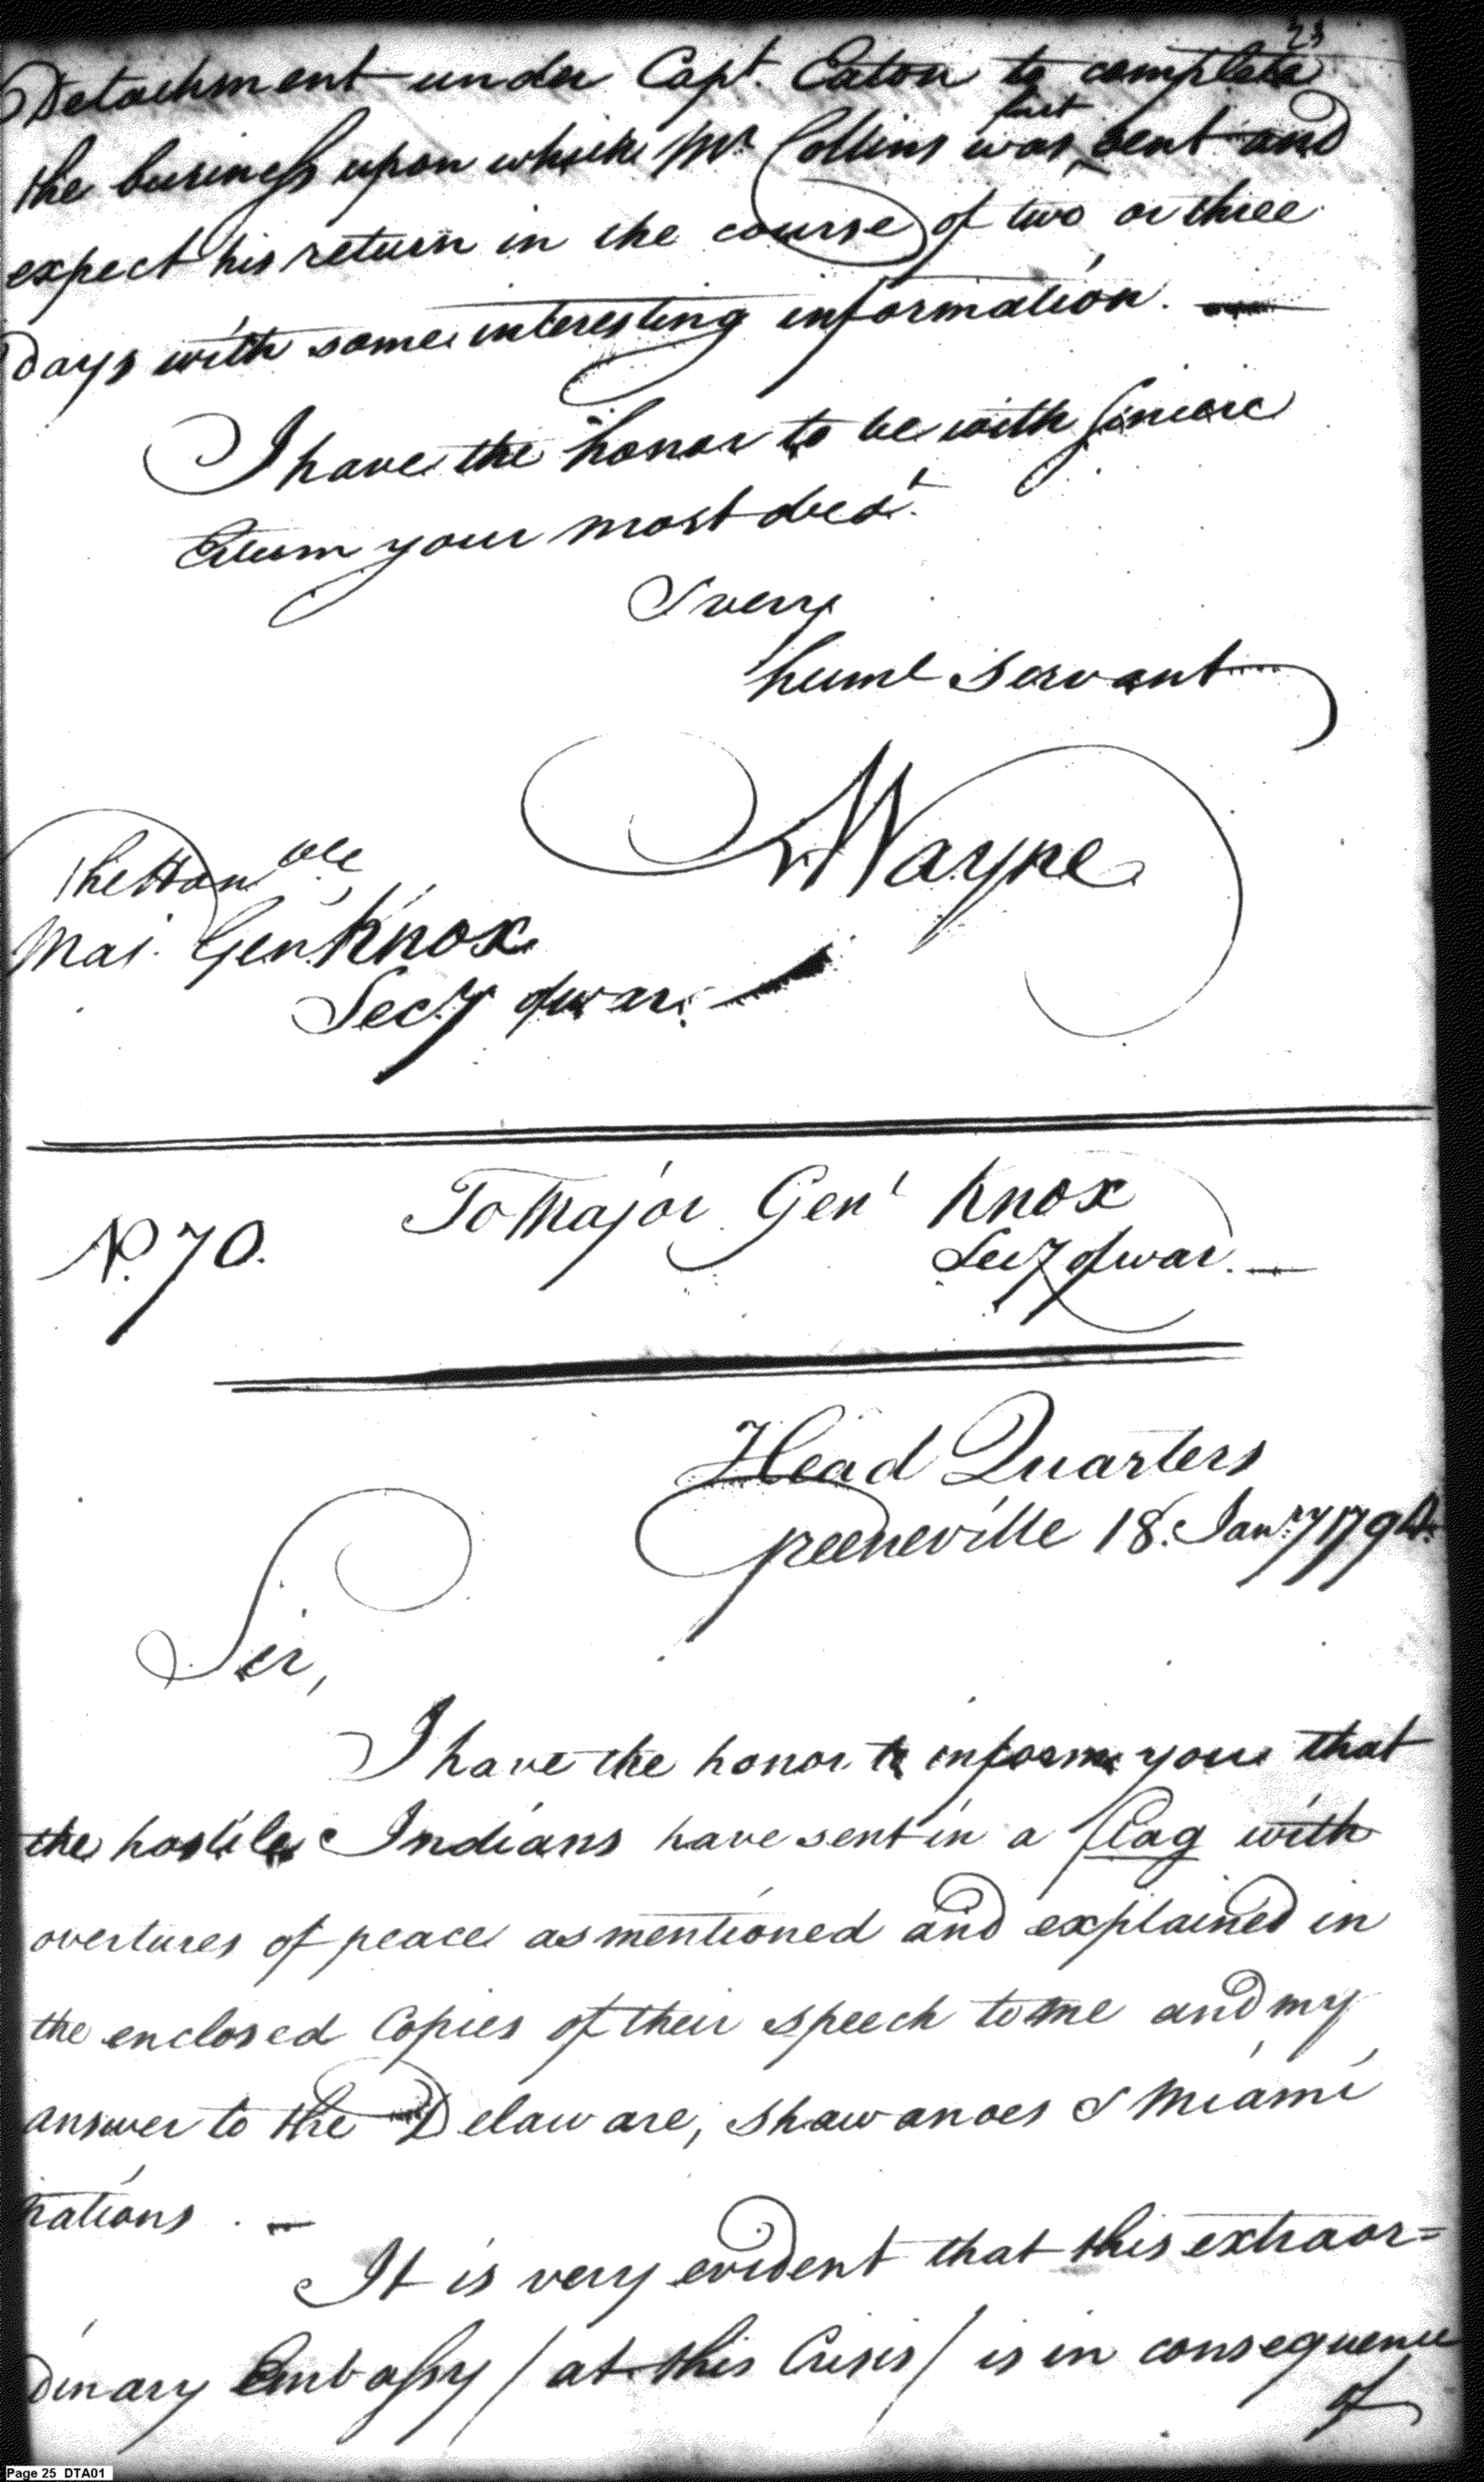 23
Detachment under Capt. Eaton to complete
the business upon which Mr Collins was first sent and
expect his return in the course of two or three
Days with some interesting information. —
I have the honor to be with sincere
Esteem your most obedt.
& very
huml servant
Wayne
The Honble
Maj. Genl Knox
Secy of war. —
No. 70.
To Major Genl Knox
Secy of war. —
Head Quarters
Greeneville 18. Janry 1794.
Sir,
I have the honor to inform you that
the hostile Indians have sent in a flag with
overtures of peace as mentioned and explained in
the enclosed Copies of their speech to me and my
answer to the Delaware, Shawanoes & Miami
nations. —
It is very evident that this extraor=
dinary Embassy / at this Crisis / is in consequence
of
Page 25 DTA01